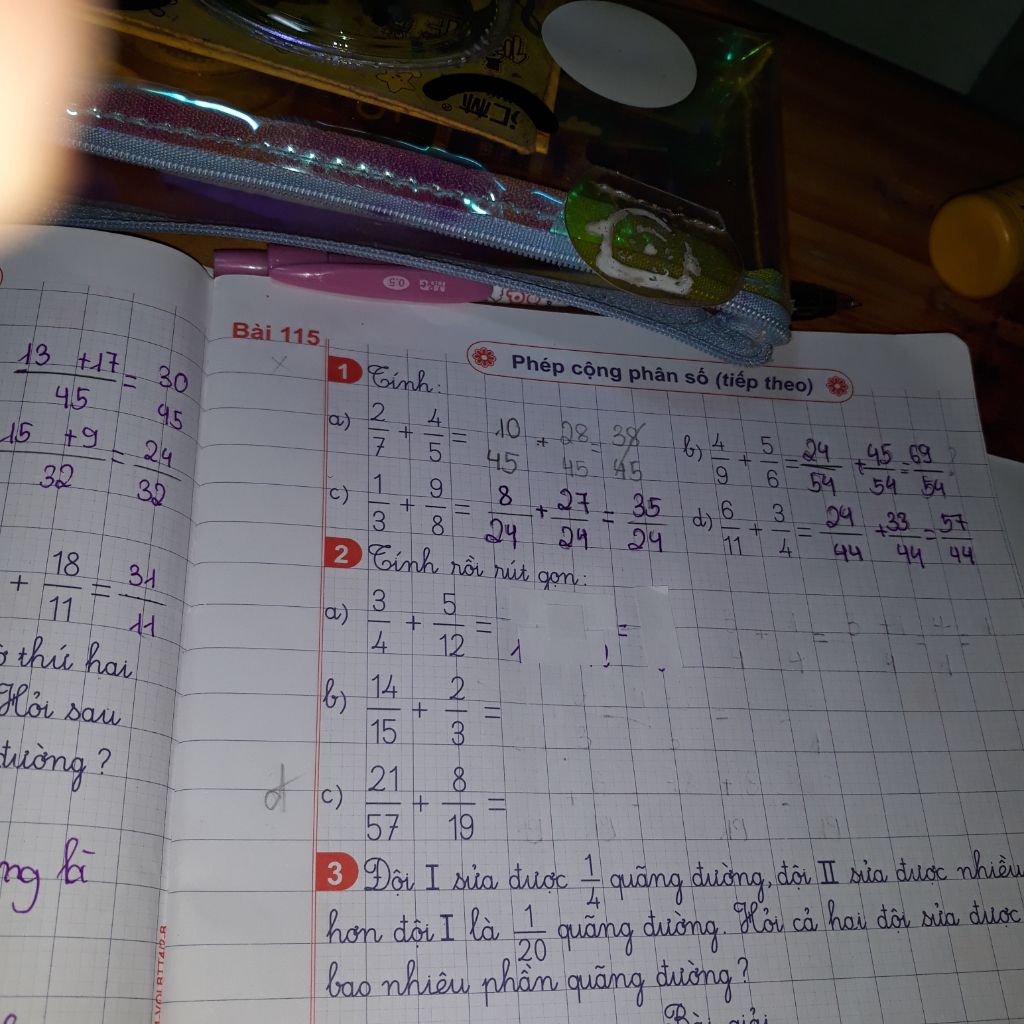 13 + 17 / 45 = 30 / 95
15 + 9 / 32 = 24 / 32
+ 18/11 = 31/11
thứ hai
Hỏi sau
đường?
ng là
Bài 115
Phép cộng phân số (tiếp theo)
1 Tính:
a) 2/7 + 4/5 = 10/45 + 28/45 = 38/45
b) 4/9 + 5/6 = 24/54 + 45/54 = 69/54
c) 1/3 + 9/8 = 8/24 + 27/24 = 35/24
d) 6/11 + 3/4 = 24/44 + 33/44 = 57/44
2 Tính rồi rút gọn:
a) 3/4 + 5/12 = =
b) 14/15 + 2/3 =
c) 21/57 + 8/19 =
3 Đội I sửa được 1/4 quãng đường, đội II sửa được nhiều
hơn đội I là 1/20 quãng đường. Hỏi cả hai đội sửa được
bao nhiêu phần quãng đường?
Bài giải